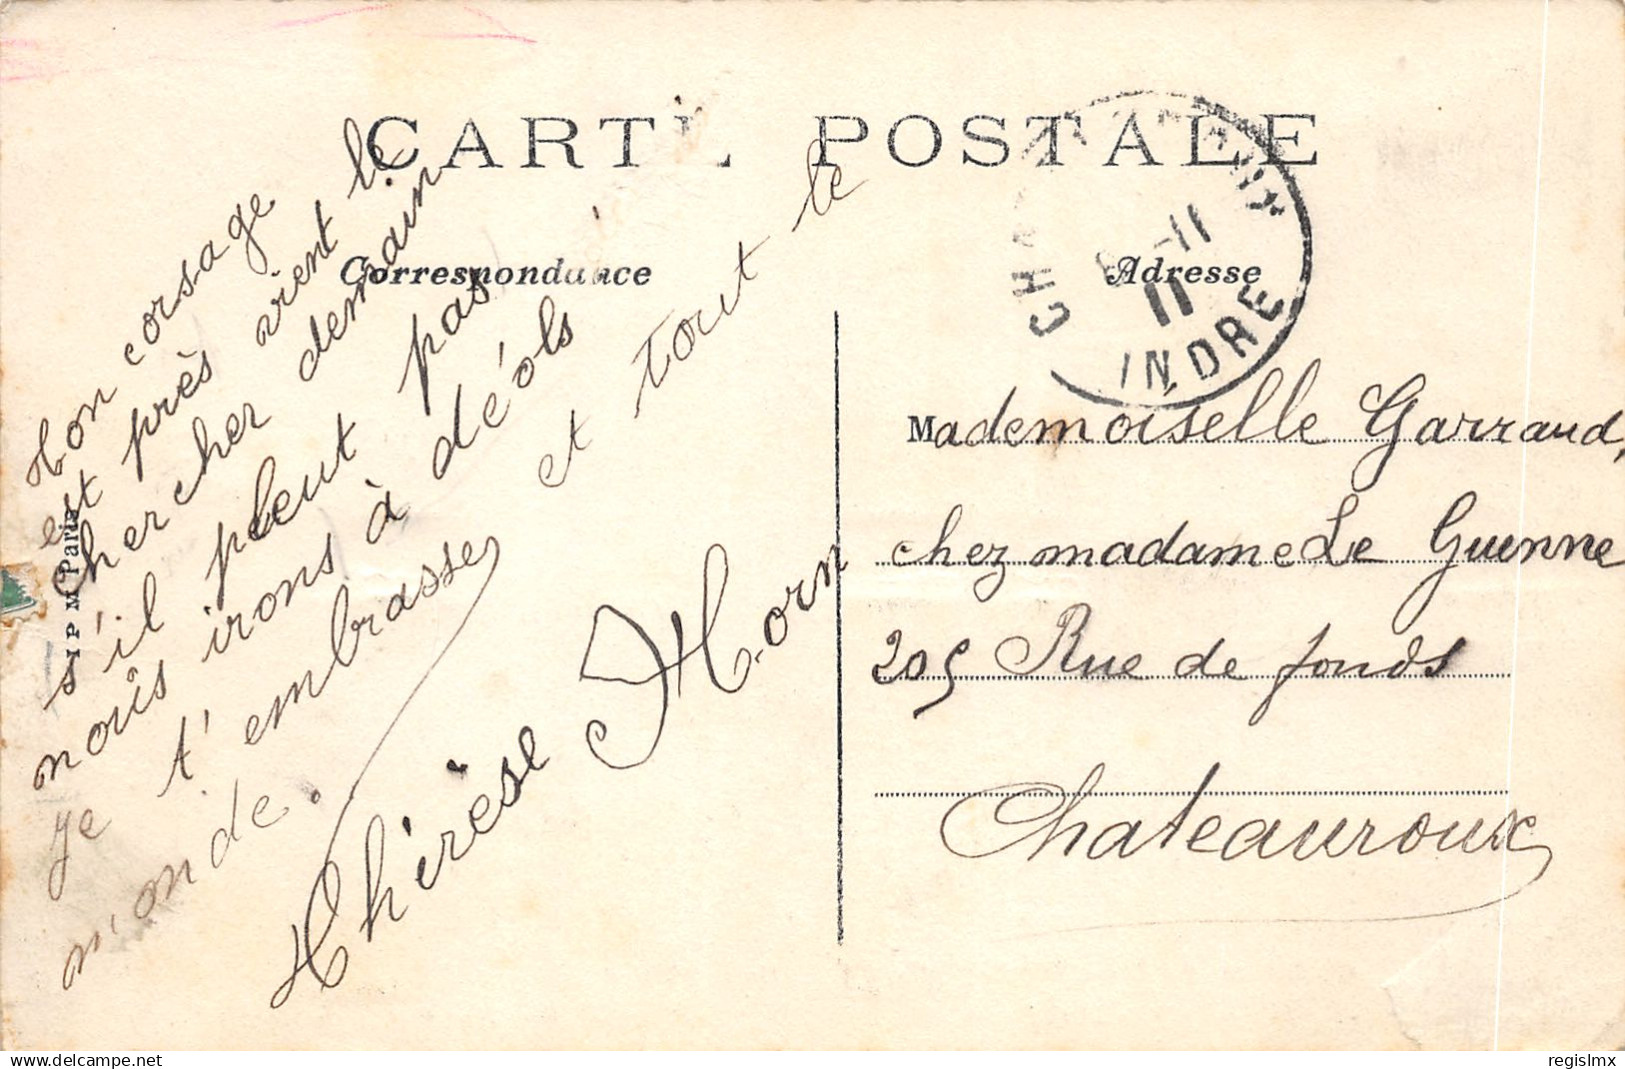 CARTE POSTALE
Correspondance
Adresse
INDRE
11
I P M Paris
Ton corsage
est près vient le
chercher demain
s'il pleut pas
nous irons à déols
je t'embrasse et tout le
monde.
Thérèse Horn
Mademoiselle Garraud,
chez madame Le Guenne
205 Rue de fonds
Chateauroux
delcampe.net
regislmx